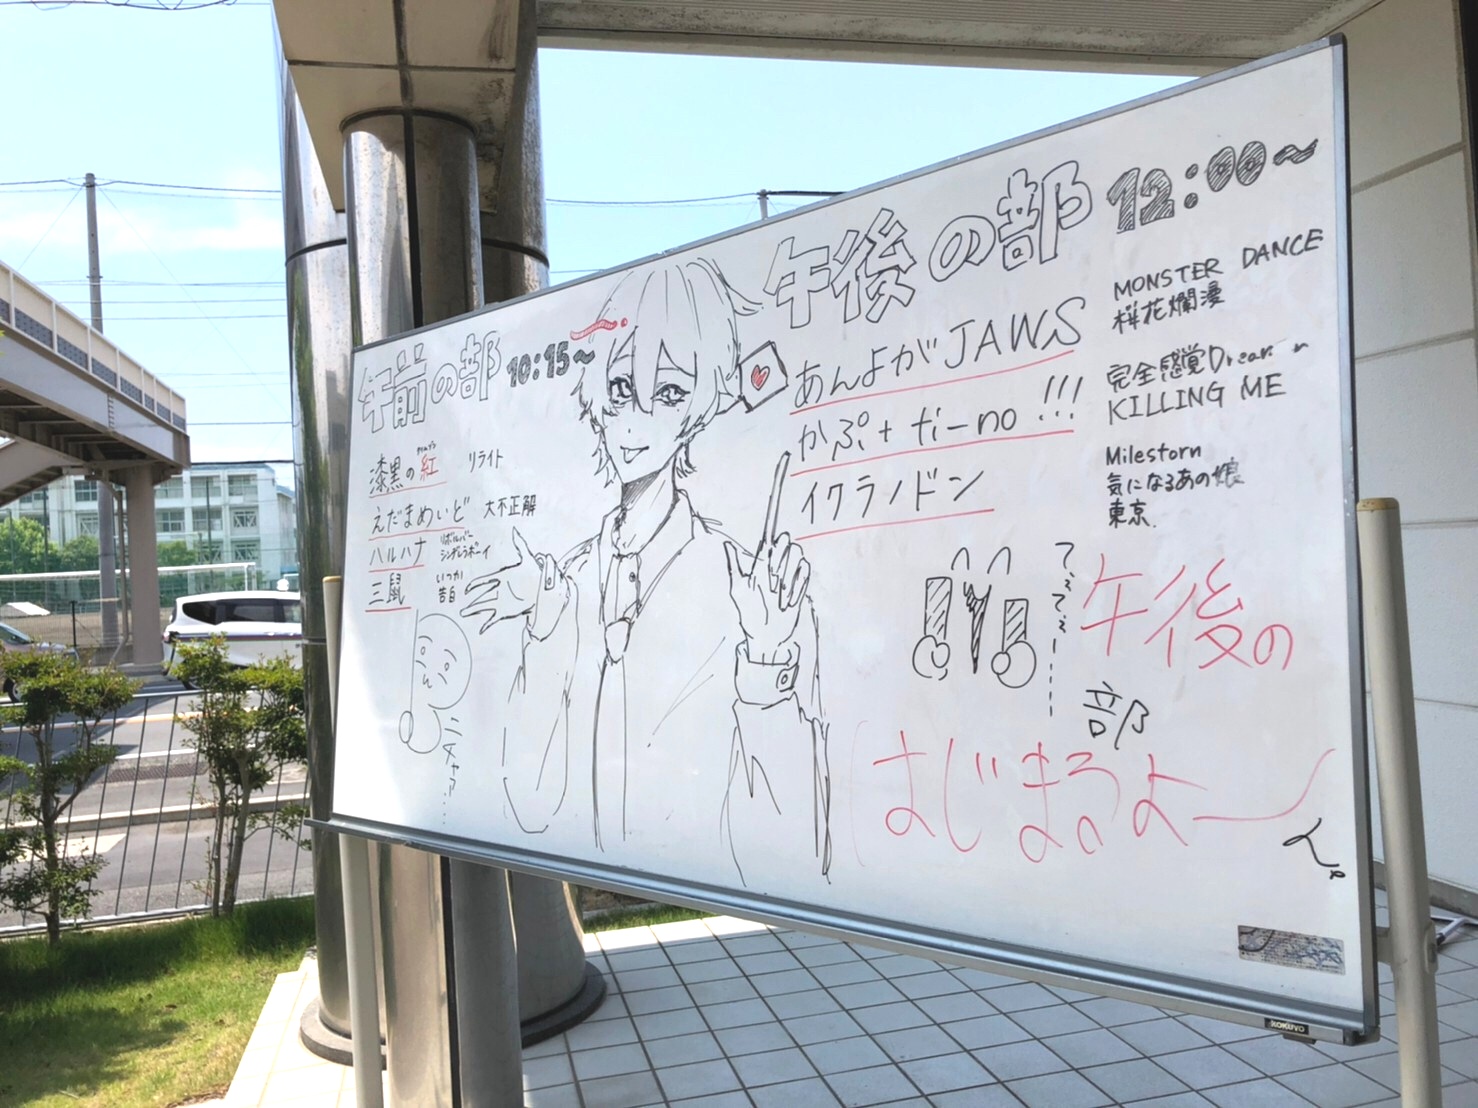 午前の部 10:15~
漆黒の紅 リライト
えだまめいど 大不正解
ハルハナ リボルバー
シンデレラボーイ
三鼠 いつか
告白
ニチャァ...
午後の部 12:00~
あんよがJAWS
MONSTER DANCE
桜花爛漫
完全感覚
KILLING ME
イクラノドン
Milestorn
気になるあの娘
東京
午後の
部
はじまるよー
KOKUYO